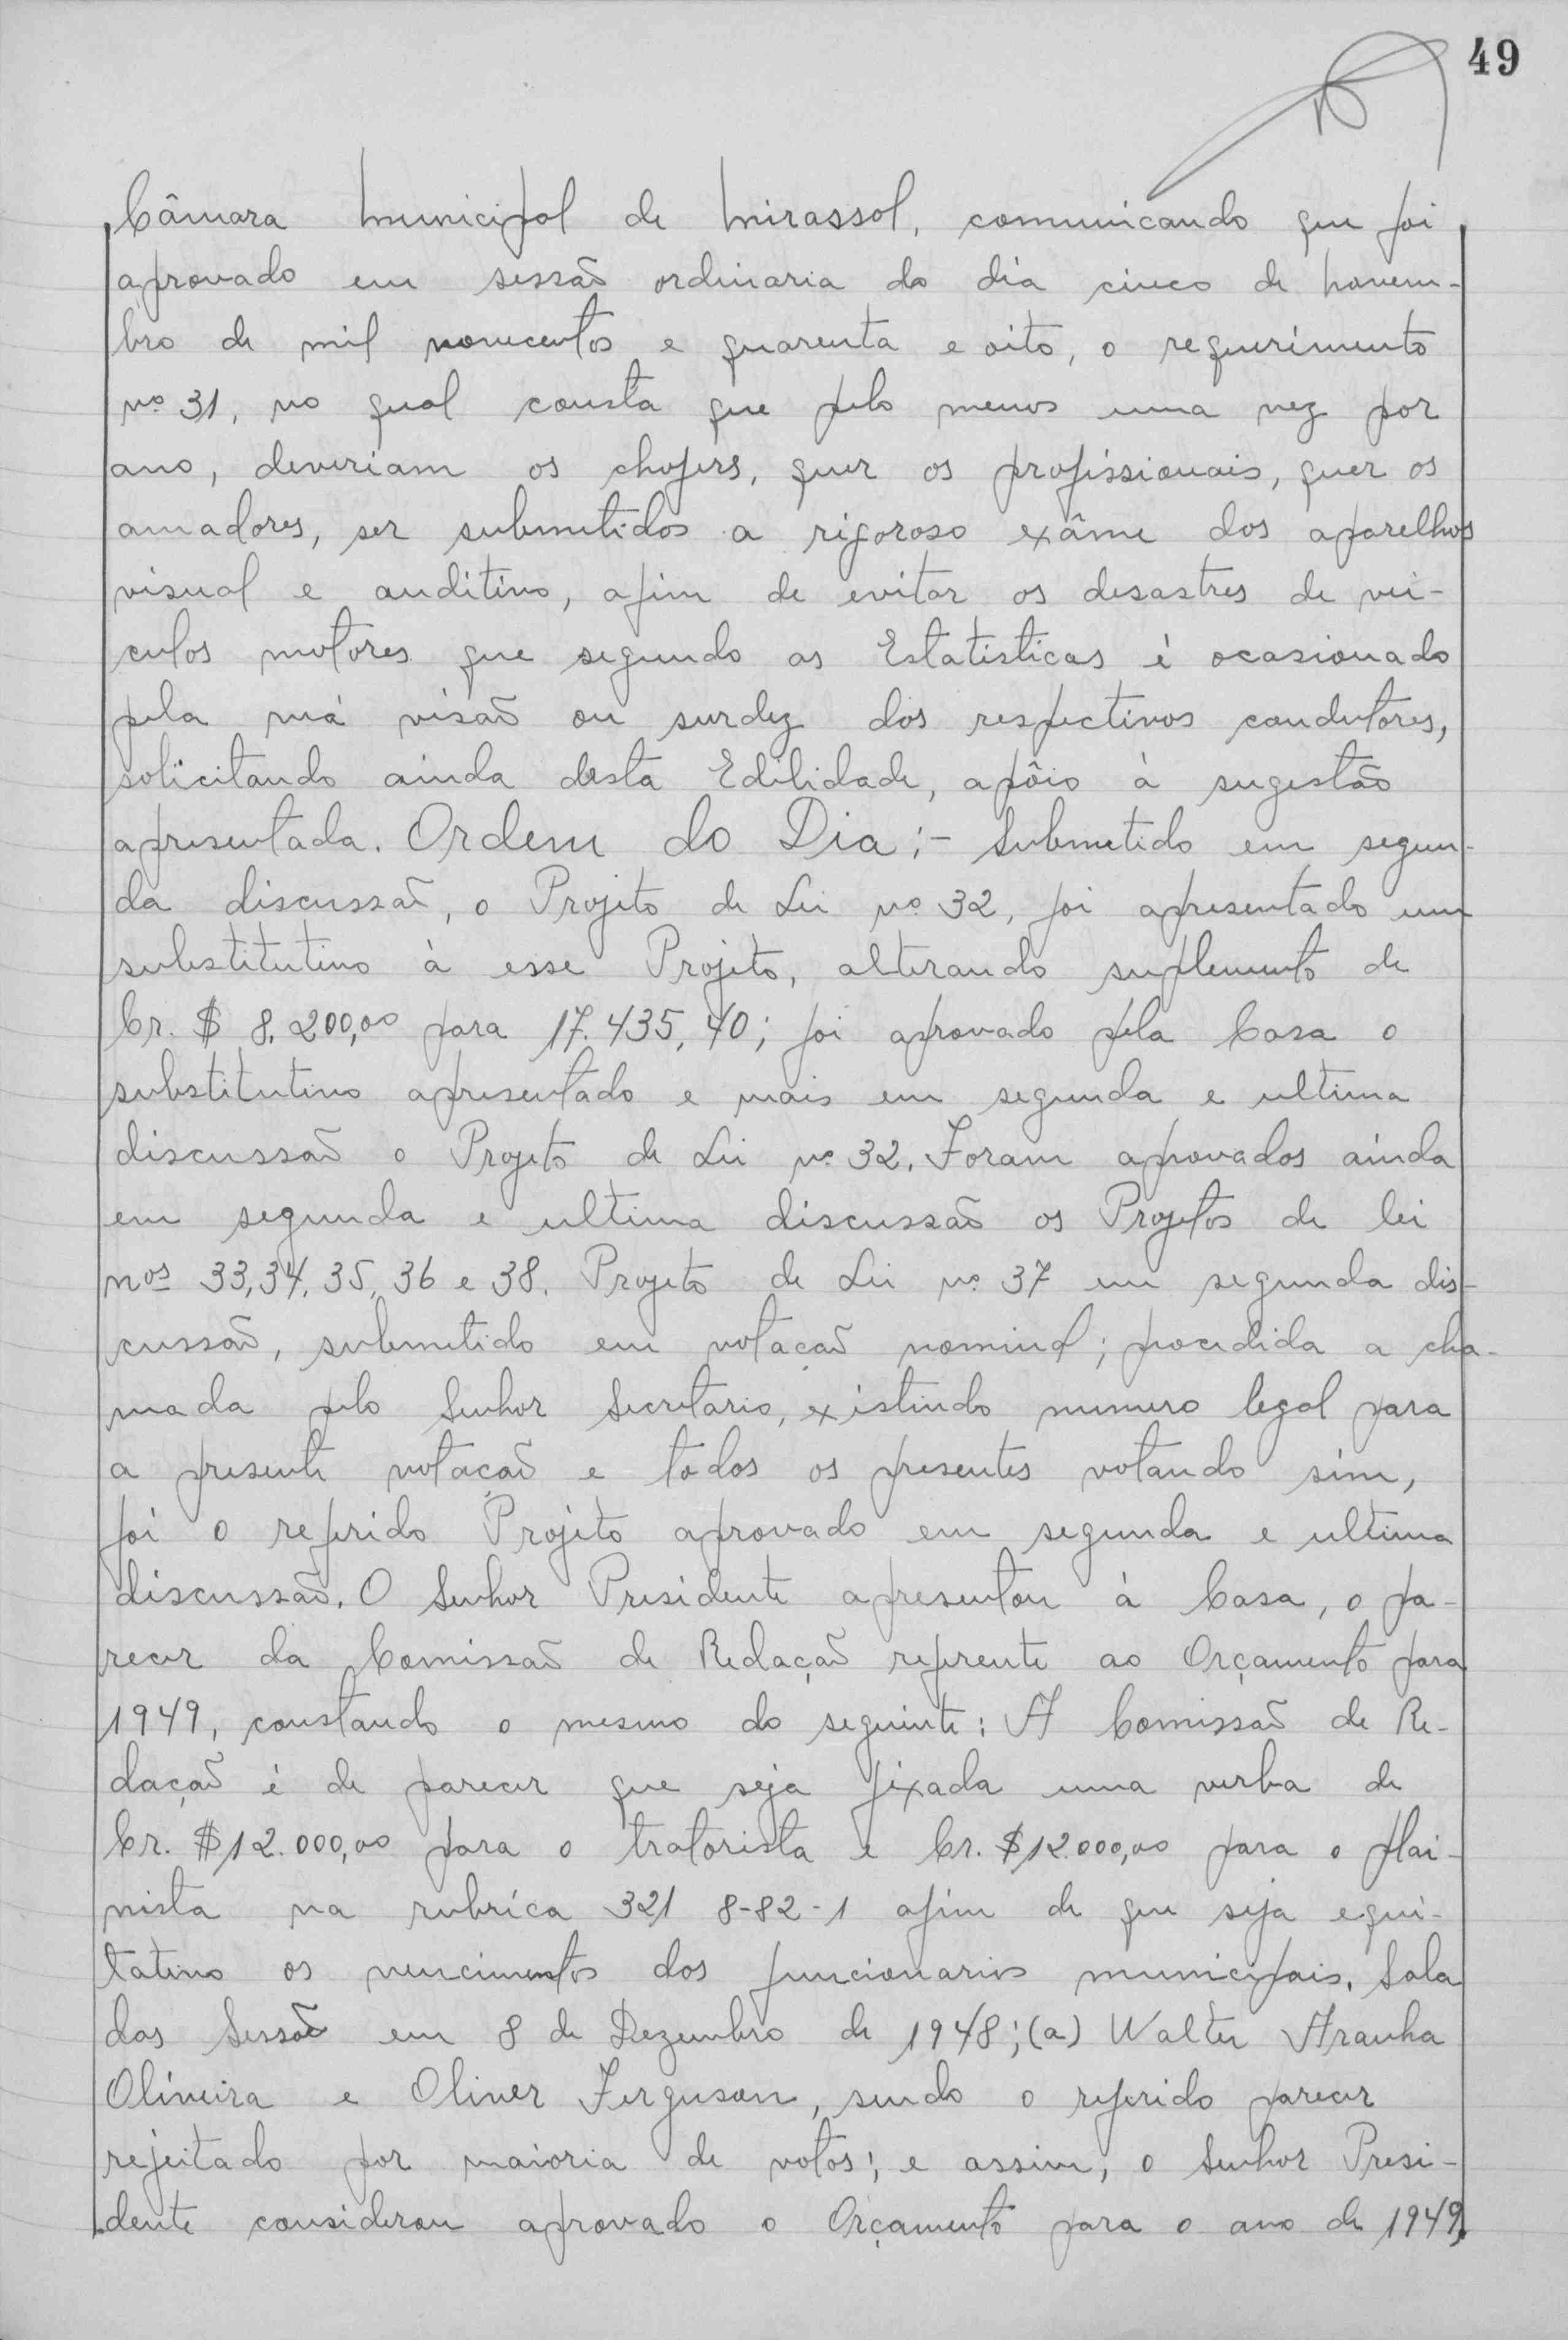 49
Câmara Municipal de Mirassol, comunicando que foi
aprovado em sessão ordinaria do dia cinco de Novem-
bro de mil novecentos e quarenta e oito, o requerimento
nº 31, no qual consta que pelo menos uma vez por
ano, deveriam os chofers, quer os profissionais, quer os
amadores, ser submetidos a rigoroso exâme dos aparelhos
visual e auditivo, afim de evitar os desastres de vei-
culos motores que segundo as Estatisticas é ocasionado
pela má visão ou surdez dos respectivos condutores,
solicitando ainda desta Edilidade, apôio à sugestão
apresentada. Ordem do Dia:- Submetido em segun-
da discussão, o Projeto de Lei nº 32, foi apresentado um
substitutivo à esse Projeto, alterando suplemento de
Cr. $ 8.200,00 para 17.435,40; foi aprovado pela Casa o
substitutivo apresentado e mais em segunda e ultima
discussão o Projeto de Lei nº 32. Foram aprovados ainda
em segunda e ultima discussão os Projetos de lei
nos 33,34,35,36 e 38. Projeto de Lei nº 37 em segunda dis-
cussão, submetido em votação nominal; procedida a cha-
mada pelo Senhor Secretario, existindo numero legal para
a presente votação e todos os presentes votando sim,
foi o referido Projeto aprovado em segunda e ultima
discussão. O Senhor Presidente apresentou à Casa, o pa-
recer da Comissão de Redação referente ao Orçamento para
1949, constando o mesmo do seguinte: A Comissão de Re-
dação é de parecer que seja fixada uma verba de
Cr. $12.000,00 para o tratorista e Cr. $12.000,00 para o plai-
nista na rubríca 321 8-82-1 afim de que seja equi-
tativo os vencimentos dos funcionarios municipais. Sala
das Sessão em 8 de Dezembro de 1948; (a) Walter Aranha
Oliveira e Oliver Ferguson, sendo o referido parecer
rejeitado por maioria de votos; e assim, o Senhor Presi-
dente considerou aprovado o Orçamento para o ano de 1949,